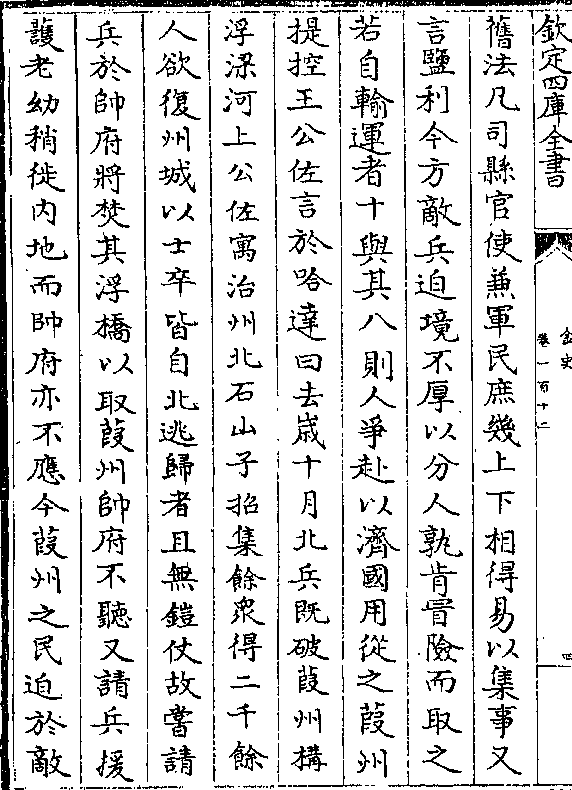 欽定四庫全書
金史
卷一百十二
四
舊法凡司縣官使兼軍民庶幾上下相得易以集事又
言鹽利今方敵兵迫境不厚以分人孰肯冒險而取之
若自輸運者十與其八則人爭赴以濟國用從之葭州
提控王公佐言於哈達曰去嵗十月北兵既破葭州構
浮梁河上公佐寓治州北石山子招集餘衆得二千餘
人欲復州城以士卒皆自北逃歸者且無鎧仗故嘗請
兵於帥府將焚其浮橋以取葭州帥府不聽又請兵援
䕶老幼稍徙内地而帥府亦不應今葭州之民迫於敵